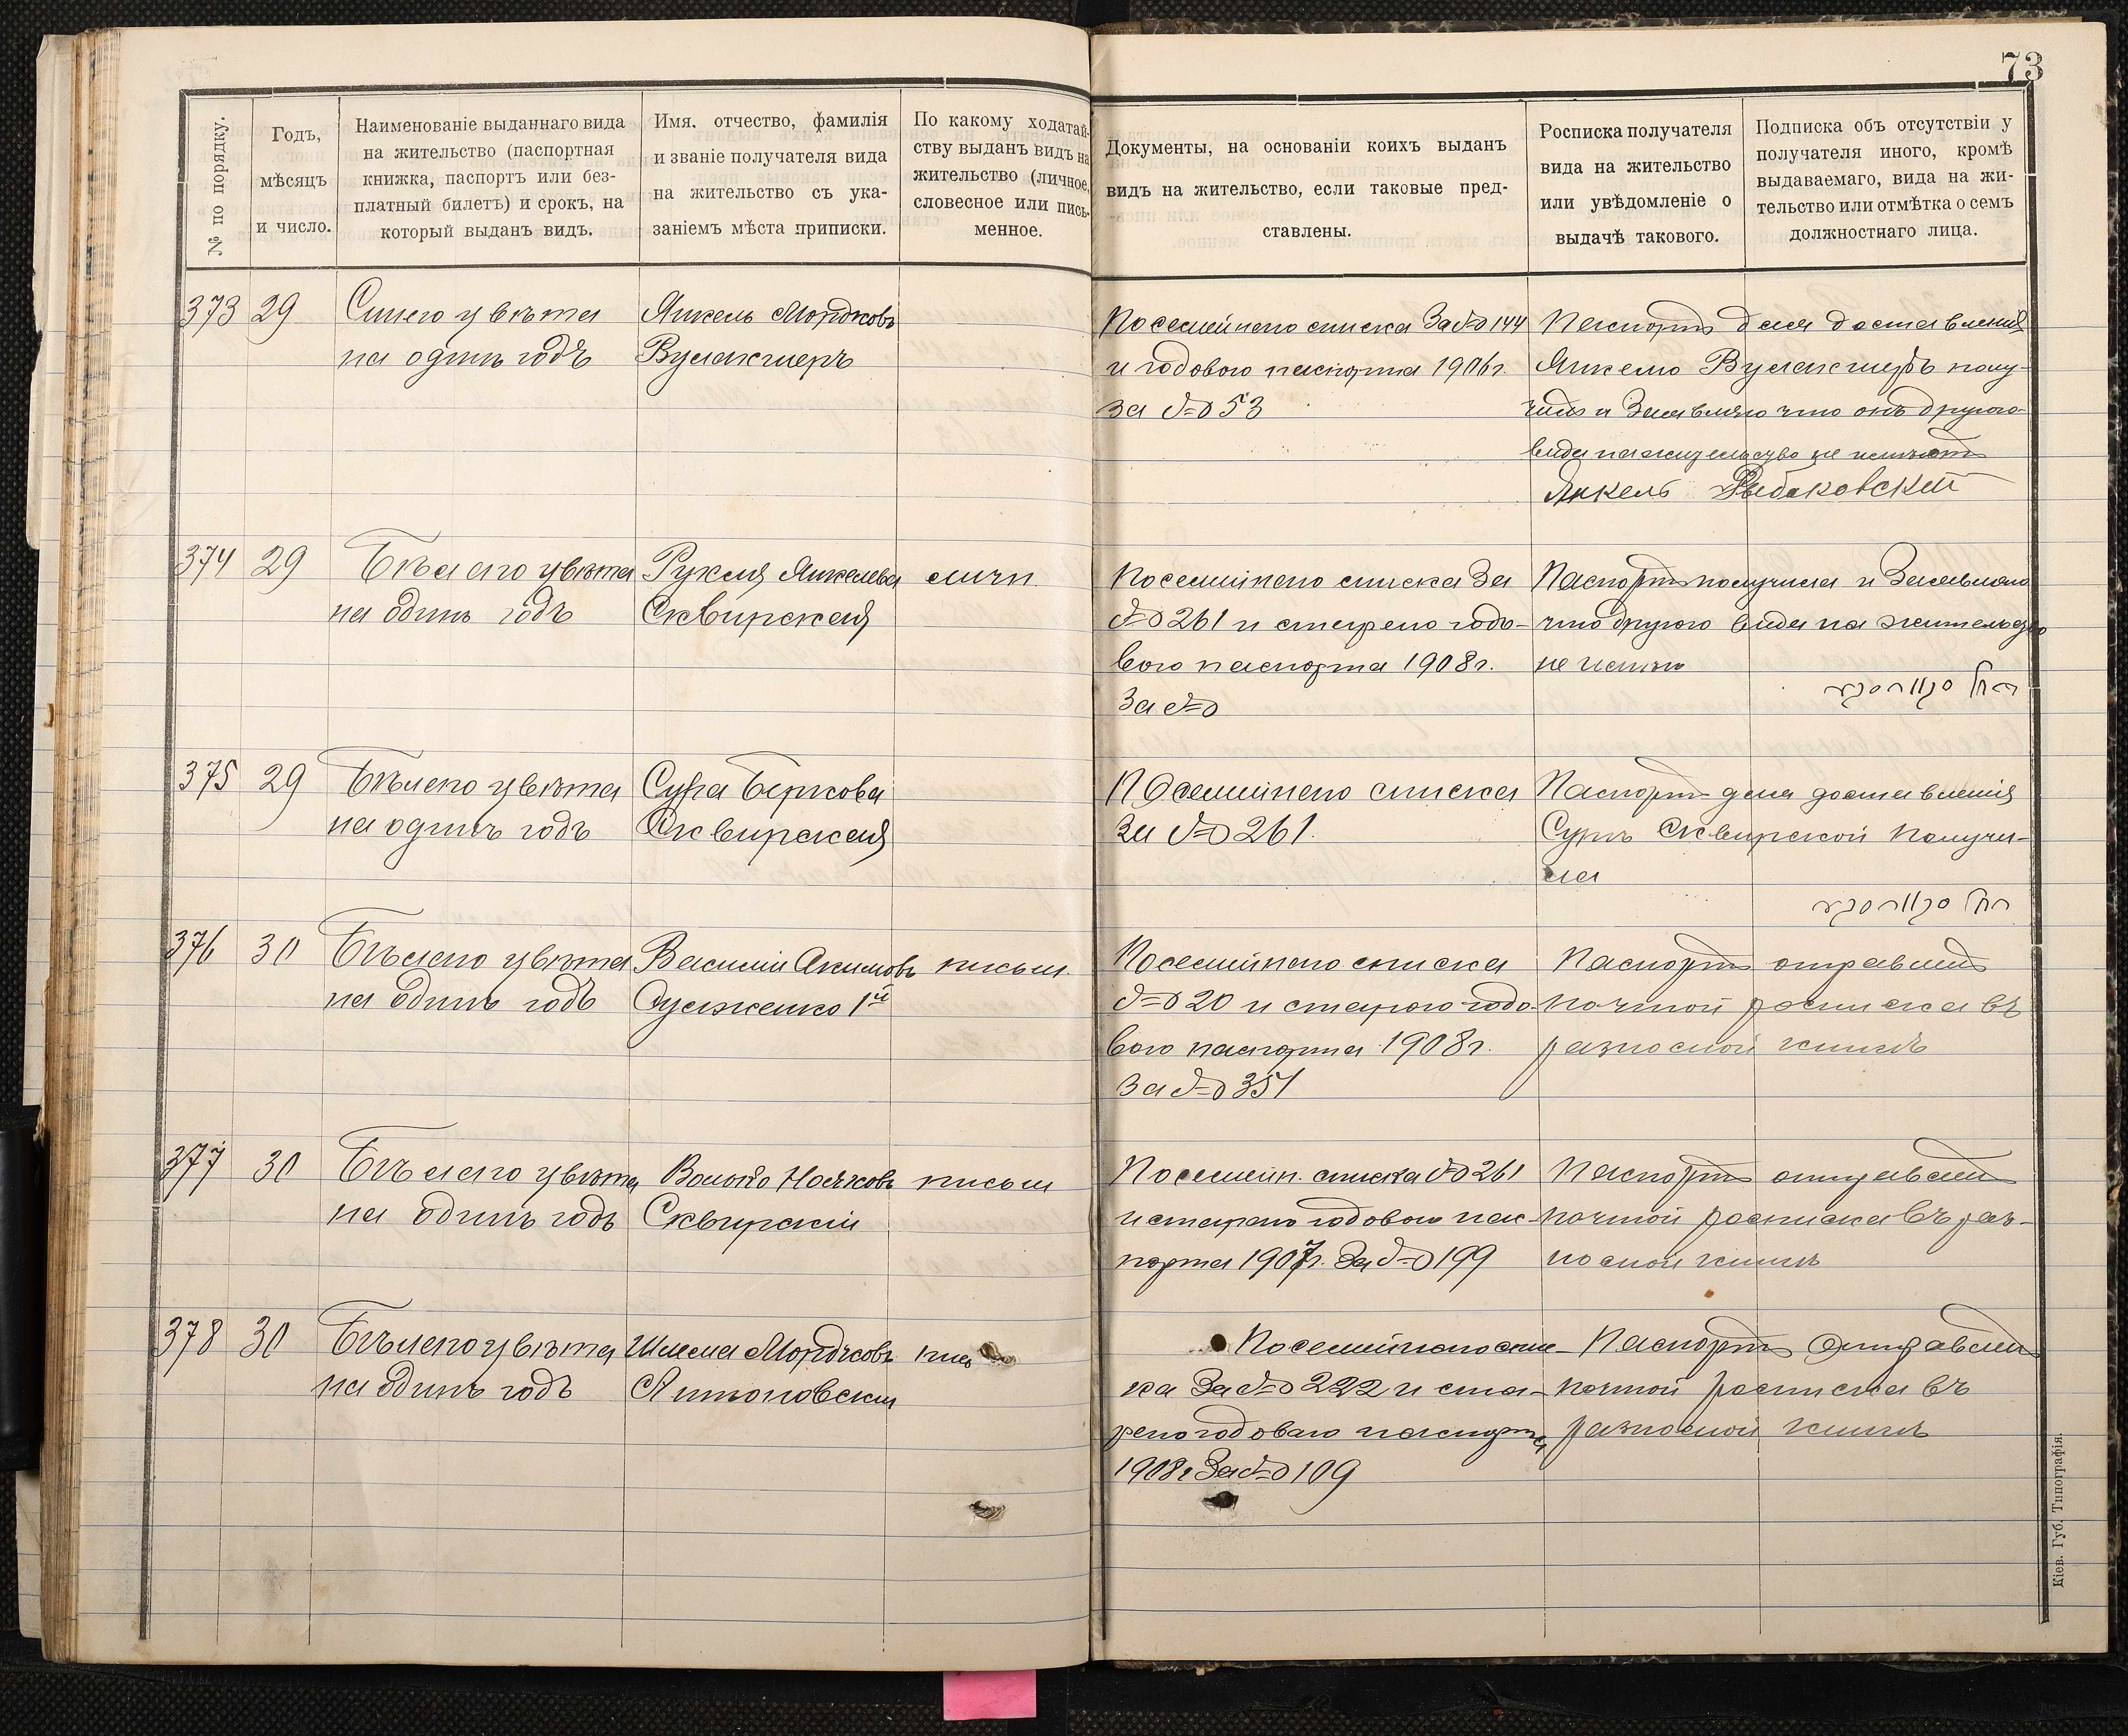 73
№ по порядку.
Годъ,
мѣсяцъ
и число.
Наименованіе выданнаго вида
на жительство (паспортная
книжка, паспортъ или без-
платный билетъ) и срокъ, на
который выданъ видъ.
Имя. отчество, фамилія
и званіе получателя вида
на жительство съ ука-
заніемъ мѣста приписки.
По какому ходатай-
ству выданъ видъ на
жительство (личное,
словесное или пись-
менное.
Документы, на основаніи коихъ выданъ
видъ на жительство, если таковые пред-
ставлены.
Росписка получателя
вида на жительство
или увѣдомленіе о
выдачѣ такового.
Подписка объ отсутствіи у
получателя иного, кромѣ
выдаваемаго, вида на жи-
тельство или отмѣтка о семъ
должностнаго лица.
373 29 Синего цвѣта
на одинъ годъ
Янкель Мордковъ
Посемейнаго списка За № 144
и годового паспорта 1906 г.
за № 53
Паспортъ для доставленія
Янкелю полу-
чилъ и Заявляю что онъ другого
вида на жительство не имѣетъ
Янкель Рыбаковскій
374 29 Бѣлаго цвѣта
на одинъ годъ
Рухля Янкелева
Сквирская
личн.
Посемейнаго списка За
№ 261 и стараго годо-
вого паспорта 1908 г.
За №
Паспортъ получила и Заявляю
что другого вида на жительство
не имѣю
375 29 Бѣлаго цвѣта
на одинъ годъ
Сура Беркова
Сквирская
Посемейнаго списка
За № 261.
Паспортъ для доставленія
Сурѣ Сквирской получи-
ла
376 30 Бѣлаго цвѣта
на одинъ годъ
Василій Акимовъ
1й
письм.
Посемейнаго списка
№ 20 и стараго годо-
вого паспорта 1908 г.
За № 351
Паспортъ отправленъ
почтой росписка въ
разносной книгѣ
377 30 Бѣлаго цвѣта
на одинъ годъ
Волько
Сквирскій
письм
Посемейн. списка № 261
и стараго годового пас-
порта 1907 г. За № 199
Паспортъ отправленъ
почтой росписка въ раз-
носной книгѣ
378 30 Бѣлаго цвѣта
на одинъ годъ
Шлема Мордковъ
пис
Посемейнаго спис-
ка За № 222 и ста-
раго годоваго паспорта
1908 г За № 109
Паспортъ отправленъ
почтой росписка въ
разносной книгѣ
Кіев. Губ. Типографія.